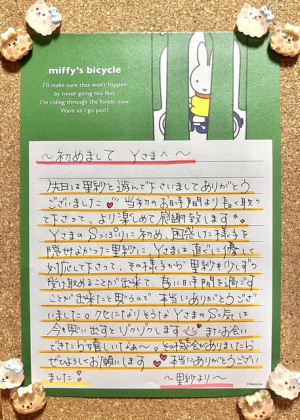 miffy's bicycle
I'll make sure that won't happen
by never going too fast.
I'm riding through the forest now
Wave as I go past!
〜初めまして Yさまへ〜
先日は里紗と遊んで下さいましてありがとう
ございました 当初のお時間より長く取っ
て下さって、より楽しめて感謝致します。
YさまのSっぷりに初め、困惑した様子を
隠せなかった里紗に、Yさまは直ぐに優しく
対応して下さって、その様子から里紗も少しずつ
受け止めることが出来て、長いお時間を過ごす
ことが出来たと思うので 本当にありがとうござ
いました。クセになりそうなYさまのSっ気は
今も思い出すとゾクゾクします またお会い
できたら嬉しいなぁ〜。その機会がありましたら
ぜひよろしくお願いします 本当にありがとうござい
ました!
〜里紗より〜